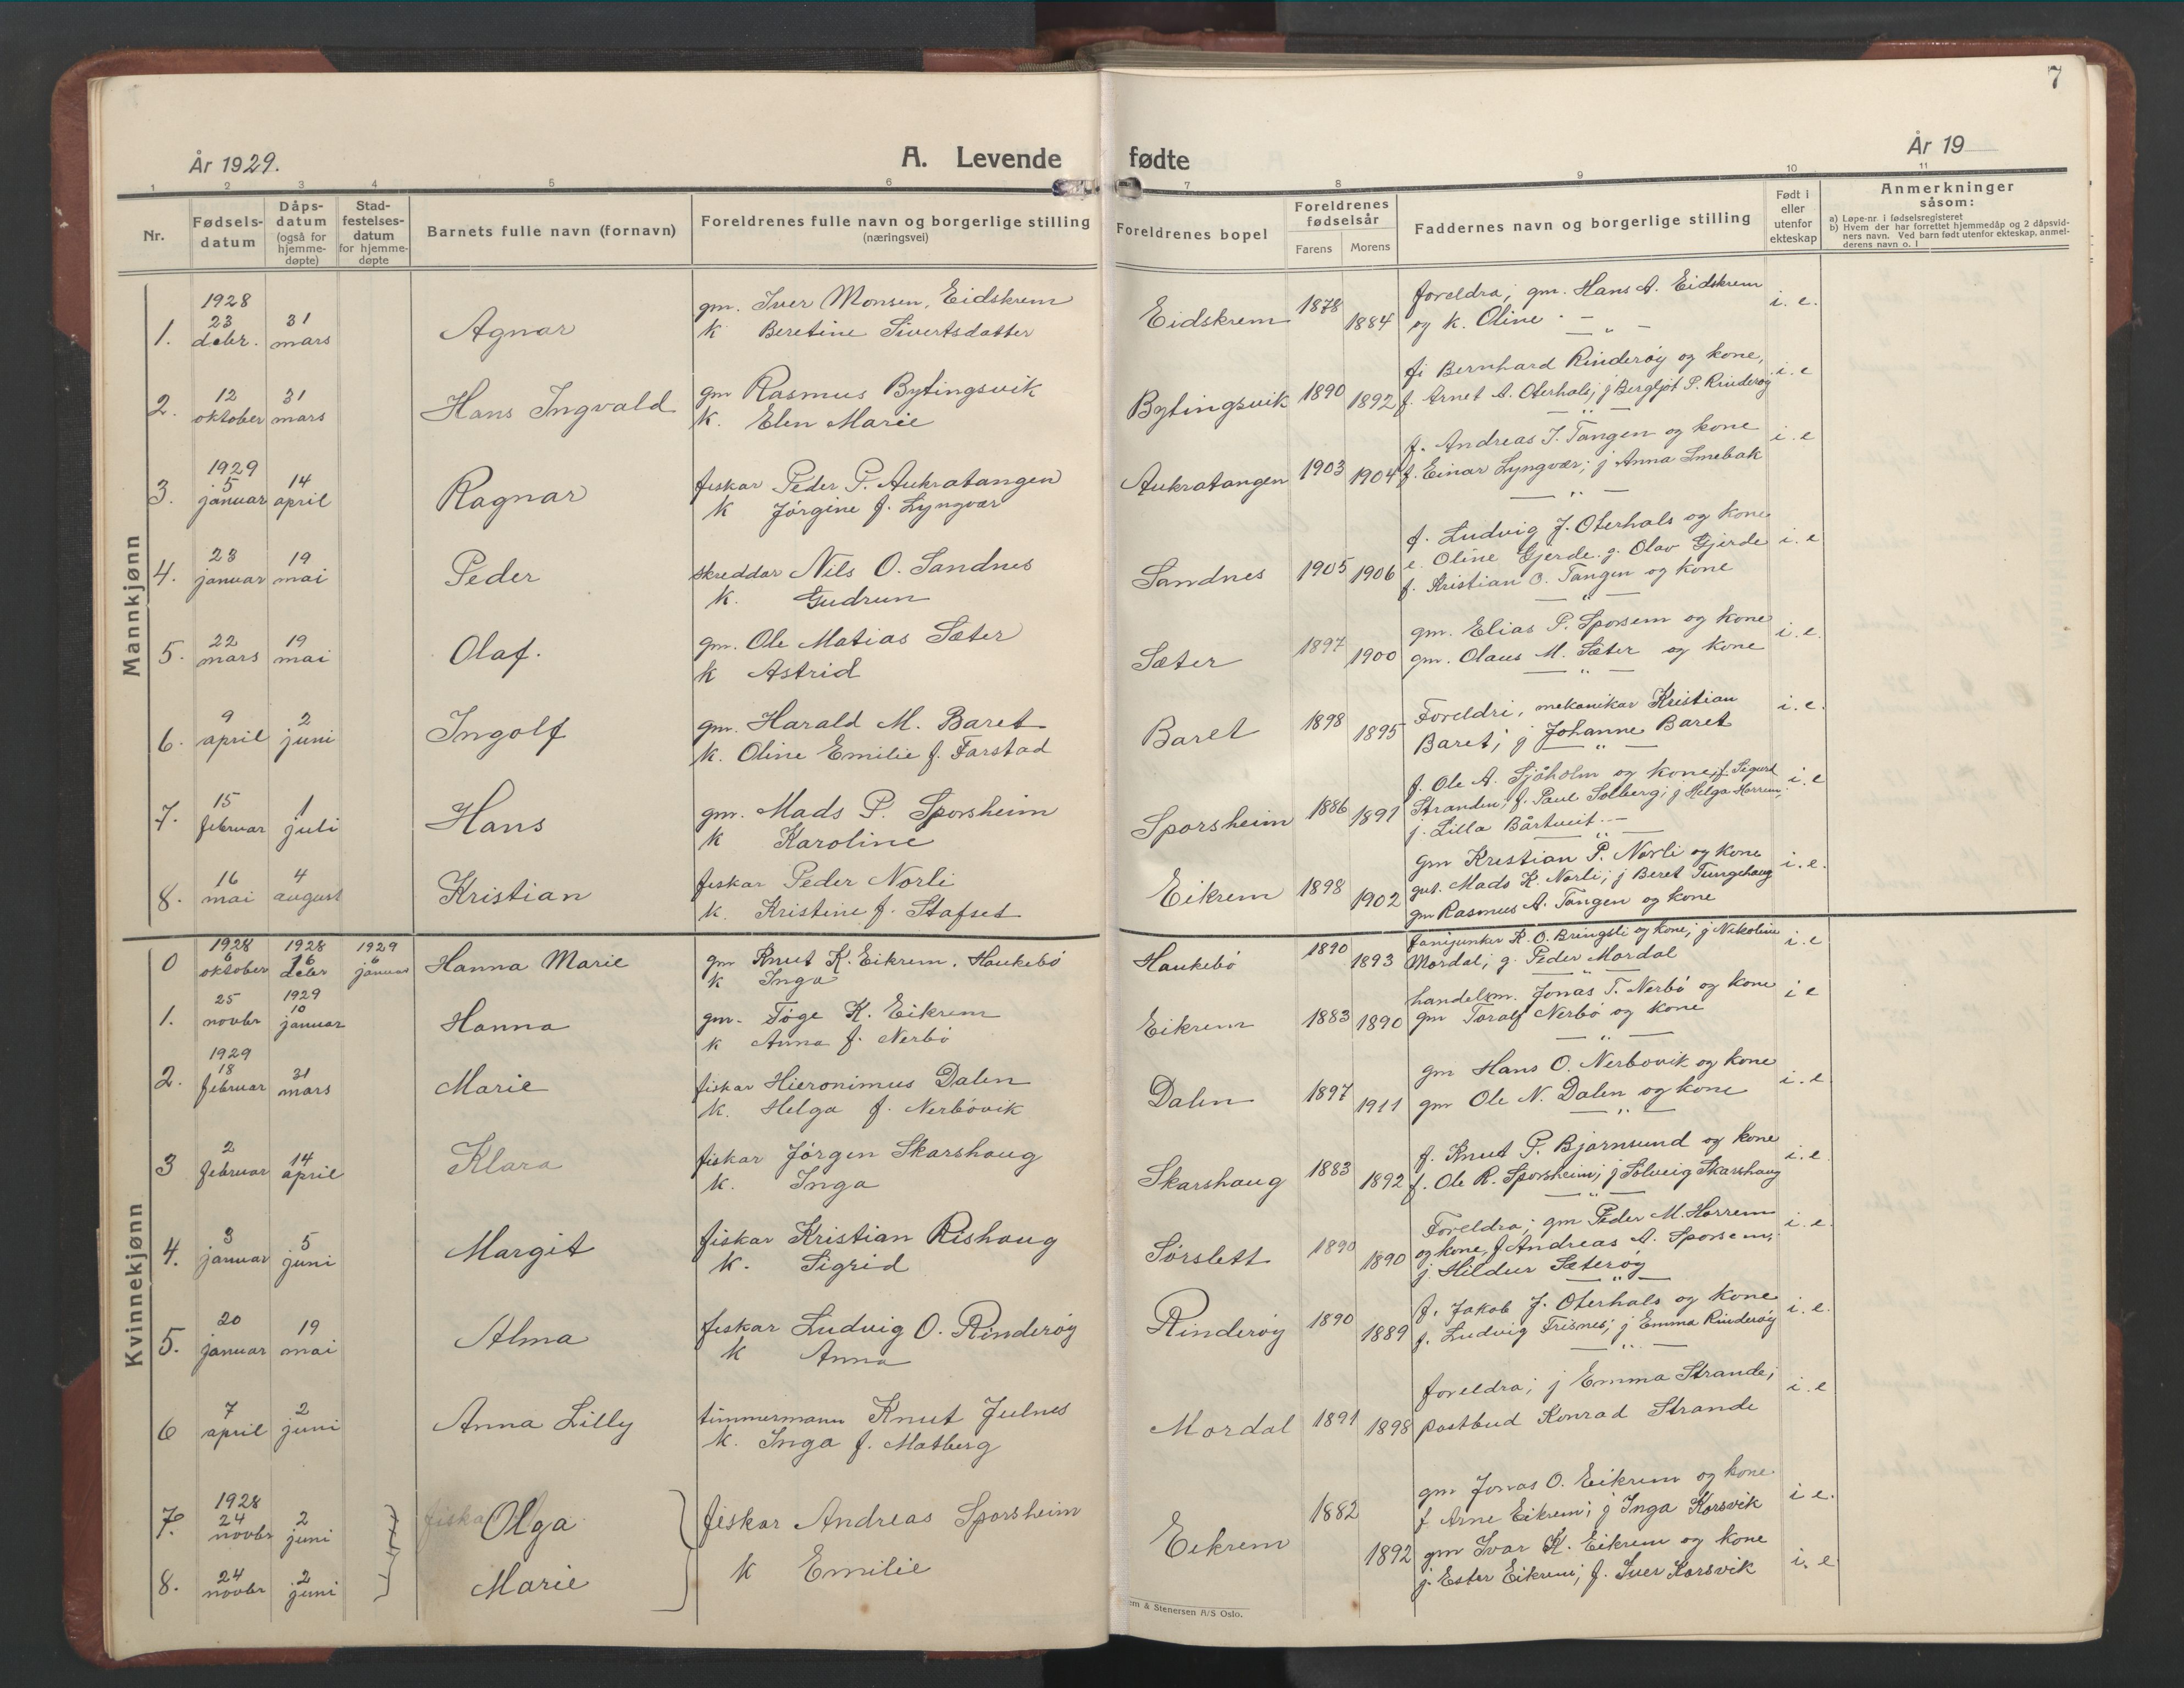 7
År 1929.
A. Levende fødte
År 19
1 2 3 4 5 6 7 8 9 10 11
Nr.
Fødsels-
datum
Dåps-
datum
(også for
hjemme-
døpte)
Stad-
festelses-
datum
for hjemme-
døpte
Barnets fulle navn (fornavn)
Foreldrenes fulle navn og borgerlige stilling
(næringsvei)
Foreldrenes bopel
Foreldrenes
fødselsår
Farens Morens
Faddernes navn og borgerlige stilling
Født i
eller
utenfor
ekteskap
Anmerkninger
såsom:
a) Løpe-nr. i fødselsregisteret
b) Hvem der har forrettet hjemmedåp og 2 dåpsvid-
ners navn. Ved barn født utenfor ekteskap, anmel-
derens navn o. l
Mannkjønn
1.
1928
23
debr.
31
mars
Agnar
gm. Iver Monsen, Eidskrem
k Beretine Sivertsdatter
Eidskrem
1878
1884
foreldra; gm. Hans A. Eidskrem
og k. Oline - " -
i. e.
2.
12
oktober
31
mars
Hans Ingvald
gm Rasmus Bytingsvik
k. Elen Marie
Bytingsvik
1890
1892
fi Bernhard Rinderøy og kone,
f. Arnet A. Oterhals; j Bergljot P. Rinderøy
- " -
i. e
3.
1929
5
januar
14
april
Ragnar
fiskar Peder P. Aukratangen
k Jørgine f. Lyngvær
Aukratangen
1903
1904
f. Andreas J. Tangen og kone
f. Einar Lyngvær; j Anna Smebak
- " -
i. e
4.
23
januar
19
mai
Peder
skreddar Nils O. Sandnes
k. Gudrun
Sandnes
1905
1906
f. Ludvig J. Oterhals og kone
e. Oline Gjerde. g. Olav Gjerde
f. Kristian O. Tangen og kone
- " -
i. e
5.
22
mars
19
mai
Olaf.
gm. Ole Matias Sæter
k Astrid
Sæter
1897
1900
gm. Elias P. Sporsem og kone
gm. Olaus M. Sæter og kone
- " -
i. e.
6.
9
april
2
juni
Ingolf
gm. Harald M. Baret
k. Oline Emilie f. Farstad
Baret
1898
1895
Foreldri, mekanikar Kristian
Baret; j Johanne Baret
- " -
i. e.
7.
15
februar
1
juli
Hans
gm. Mads P. Sporsheim
k Karoline
Sporsheim
1886
1891
f. Ole A. Sjåholm og kone, f. Sigurd
Stranden; f. Paul Solberg; j Helga Horrem;
j. Lilla Bårtveit.
- " -
i. e
8.
16
mai
4
august
Kristian
fiskar Peder Norli
k. Kristine f. Stafset
Eikrem
1898
1902
gm Kristian P. Norli og kone
gut. Mads K. Norli; j Beret Tungehaug
gm Rasmus A. Tangen og kone
i. e.
Kvinnekjønn
0
1928
6
oktober
1928
16
debr
1929
6
januar
Hanna Marie
gm Knut K. Eikrem. Haukebø
k Inga
Haukebø
1890
1893
fanejunker K. O. Bringsli og kone; j Nikoline
Mordal; g. Peder Mordal
- " -
i. e
1.
25
novbr
1929
10
januar
Hanna
gm. Tøge K. Eikrem
k Anna f. Nerbø
Eikrem
1883
1890
handelsm. Jonas T. Nerbø og kone
gm Toralf Nerbø og kone
- " -
i e
2.
1929
18
februar
31
mars
Marie
fiskar Hieronimus Dalen
k. Helga f. Nerbøvik
Dalen
1897
1911
gm Hans O. Nerbøvik og kone
gm Ole N. Dalen og kone
- " -
i. e
3
2
februar
14
april
Klara
fiskar Jørgen Skarshaug
k. Inga
Skarshaug
1883
1892
f. Knut P. Bjørnsund og kone
f. Ole R. Sporsheim; j Solveig Skarshaug
- " -
i. e
4.
3
januar
5
juni
Margit
fiskar Kristian Rishaug
k. Sigrid
Sørslett
1890
1890
Foreldra; gm Peder M. Horrem
og kone, f Andreas A. Sporsem;
j. Hildur Sæterøy
- " -
i. e.
5.
20
januar
19
mai
Alma
fiskar Ludvig O. Rinderøy
k Anna
Rinderøy
1890
1889
f. Jakob J. Oterhals og kone
f. Ludvig Frisnes; j Emma Rinderøy
- " -
i. e.
6
7
april
2
juni
Anna Lilly
timmermann Knut Julnes
k. Inga f. Matberg
Mordal
1891
1898
foreldra; j Emma Strande;
postbud Konrad Strande
i. e
7.
1928
24
novbr
2
juni
fiska Olga
fiskar Andreas Sporsheim
Eikrem
1882
gm Jonas O. Eikrem og kone
f Arne Eikrem; j Inga Korsvik
i e.
8.
24
novbr
2
juni
Marie
k Emilie
1892
gm Ivar K. Eikrem og kone
j. Ester Eikrem; f. Iver Korsvik
i. e
em & Stenersen A/S Oslo.